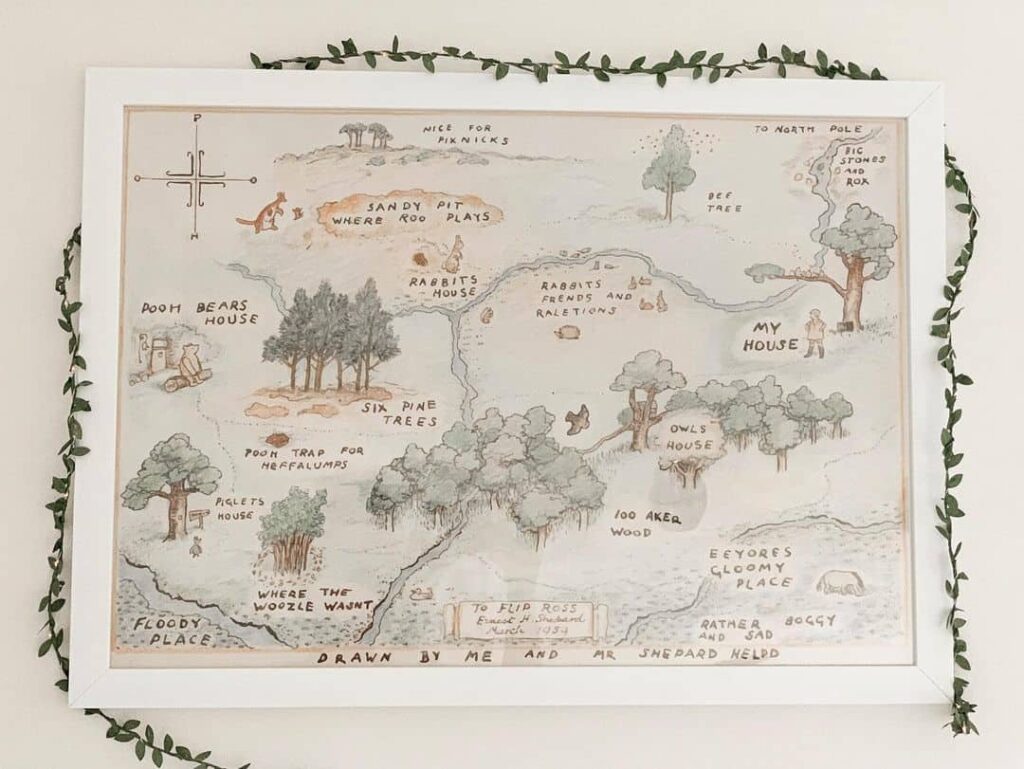 P
O O
H
NICE FOR
PIKNICKS
TO NORTH POLE
BIG
STONES
AND
ROX
BEE
TREE
SANDY PIT
WHERE ROO PLAYS
RABBITS
HOUSE
RABBITS
FRENDS AND
RALETIONS
POOH BEARS
HOUSE
MY
HOUSE
SIX PINE
TREES
POOH TRAP FOR
HEFFALUMPS
OWLS
HOUSE
PIGLETS
HOUSE
100 AKER
WOOD
EEYORES
GLOOMY
PLACE
WHERE THE
WOOZLE WASNT
FLOODY
PLACE
TO FLIP ROSS
Ernest H. Shepard
March
RATHER BOGGY
AND SAD
DRAWN BY ME AND MR SHEPARD HELPD